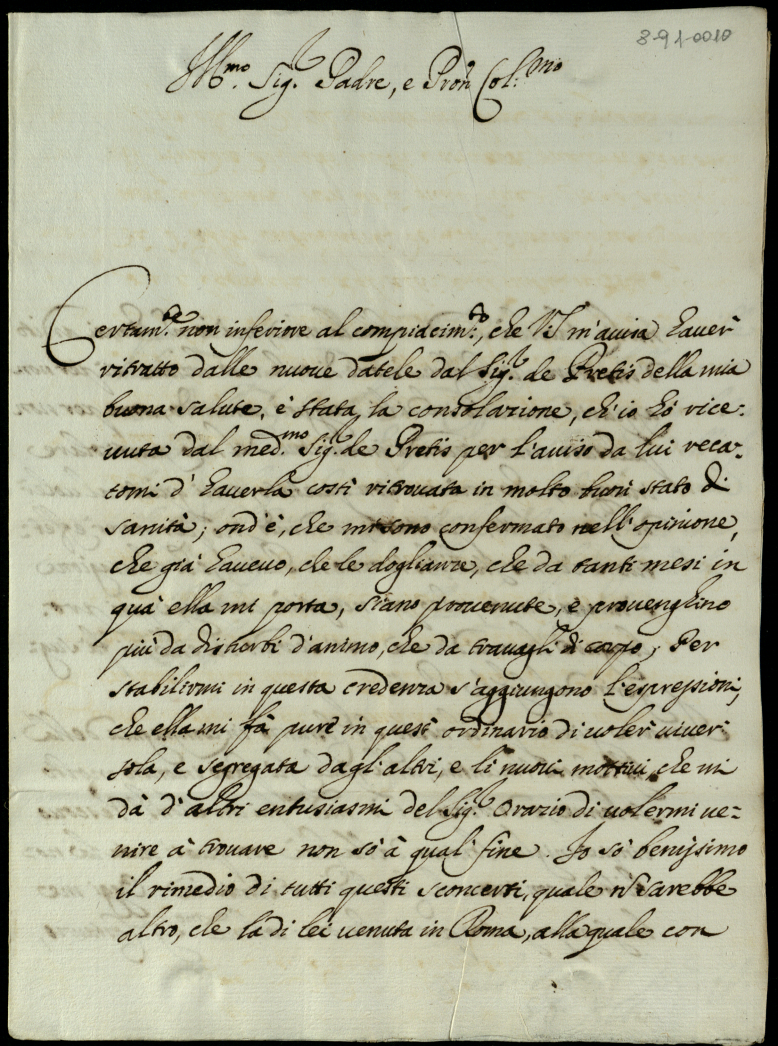 8-91-0010
Ill.mo Sig.r Padre, e Pron Col.mo
Certam.te non inferiore al compiacim.to, che VS m'auisa hauer
ritratto dalle nuoue datele dal Sig.r de Pretis della mia
buona salute, è stata la consolazione, ch'io hò rice-
uuta dal med.mo Sig.r de Pretis per l'auiso da lui reca-
tomi d'hauerla costì ritrouata in molto buon stato di
sanità; ond'è, che mi sono confermato nell'opinione,
che già haueuo, che le doglianze, che da tanti mesi in
quà ella mi porta, siano prouenute, e prouenghino
più da disturbi d'animo, che da trauagli di corpo; Per
stabilirmi in questa credenza s'aggiungono l'espressioni,
che ella mi fà pure in quest'ordinario di uoler uiuer
sola, e segregata dagl'altri, e li nuoui mottiui che mi
dà d'altri entusiasmi del Sig.r Orazio di uolermi ue-
nire à trouare non sò à qual fine. Io sò benissimo
il rimedio di tutti questi sconcerti, quale nō sarebbe
altro, che la di lei uenuta in Roma, alla quale con